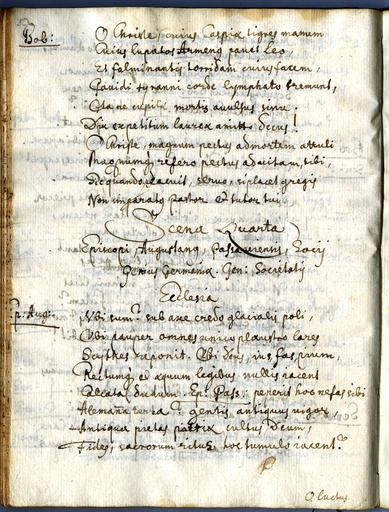 Bob: O Christe, cuius Caspiæ tigres manum
Cuius lupatos Armenus pauet Leo,
Et fulminantis torridam cuius facem,
Pauidi tyranni corde lymphato tremunt,
mortis auulsus sinu.
Diu expetitum laureæ amitto decus!
O Christe, magnum pectus ad mortem attuli
Magnumq refero pectus ad uitam, tibi,
seruo, si placet gregis
Non imparatus Pastor et tutor tui.
Scena Quarta
Episcopi, Augustanus, Passauiensis, Socij
Genius Germaniæ. Gen: Societatis
Ecclesia
Ep: Aug: Vbi sum? sub axe credo glacialis poli,
Vbi pauper omnes unico plaustro lares
Scythes reponit. Vbi Deus, ius, fas, pium,
Rectumq et æquum legibus nullis iacent
Calcata dudum. Ep: Pass: peperit hoc nefas sibi
Alemana gentis antiquus uigor
Antiqua pietas patriæ cultus Deum,
Fides, sacrorum ritus, hoc tumulo iacent?
O luctus